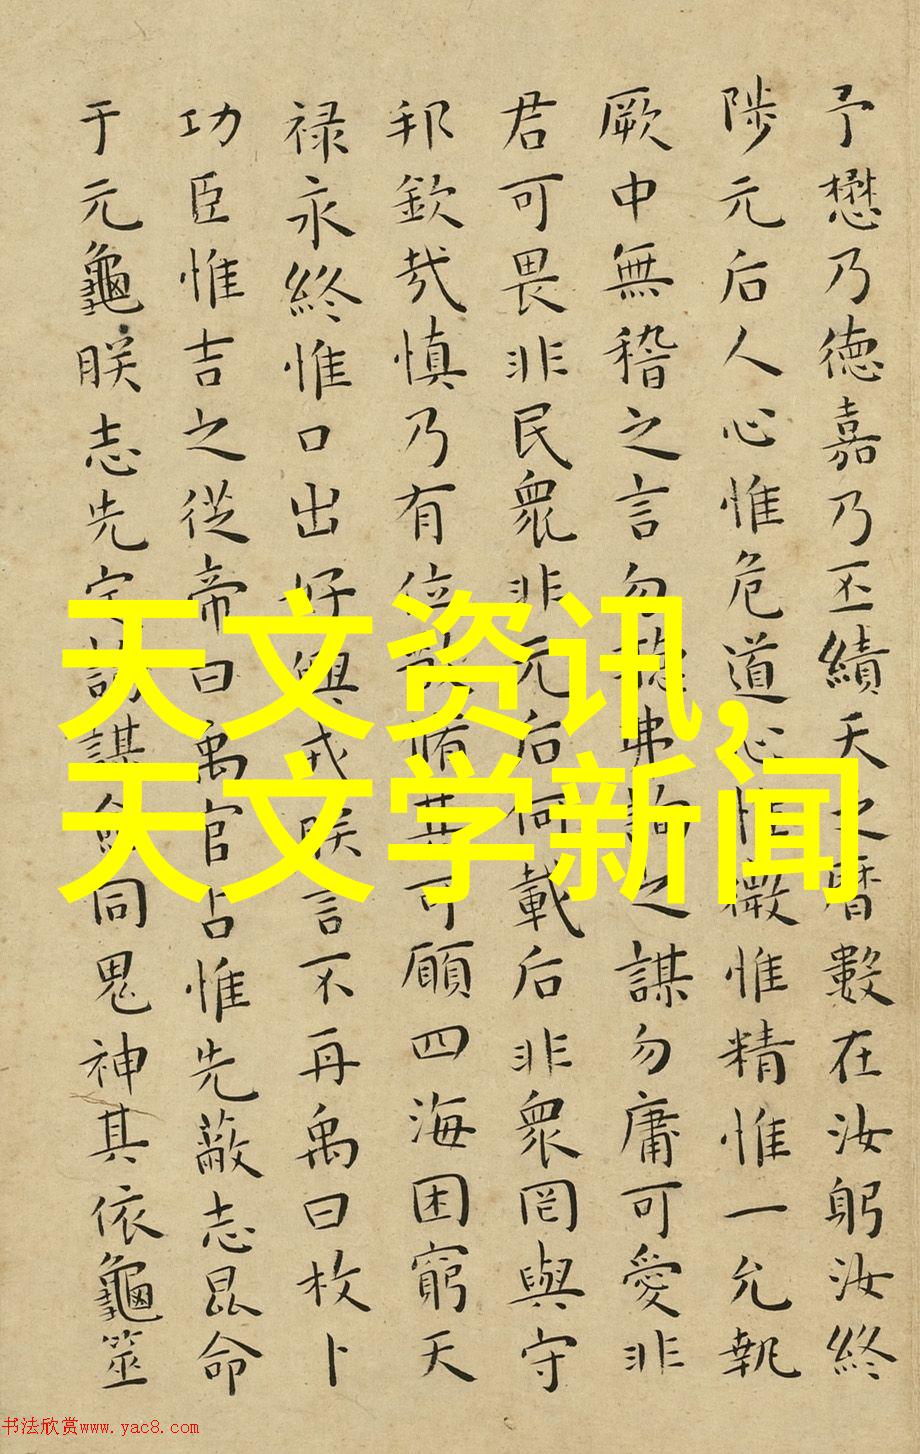 予懋乃德嘉乃丕績天之曆數在汝躬汝終
陟元后人心惟危道心惟微惟精惟一允執
厥中無稽之言勿聽弗詢之謀勿庸可愛非
君可畏非民眾非元后何載后非眾罔與守
邦欽哉慎乃有位敬脩其可願四海困窮天
禄永終惟口出好興戎朕言不再禹曰枚卜
功臣惟吉之從帝曰禹官占惟先蔽志昆命
于元龜朕志先定詢謀僉同鬼神其依龜筮
天文资讯,
天文学新闻
书法欣赏www.yac8.com